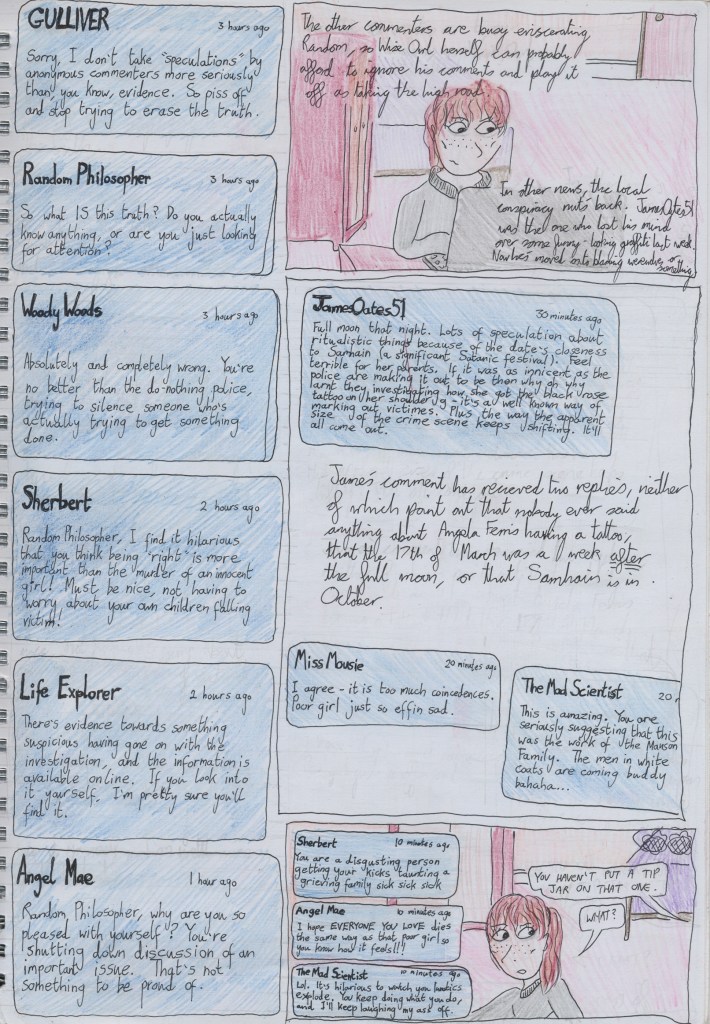 GULLIVER
3 hours ago
Sorry, I don't take "speculations" by
anonymous commenters more seriously
than, you know, evidence. So piss off
and stop trying to erase the truth.
Random Philosopher
3 hours ago
So what IS this truth? Do you actually
know anything, or are you just looking
for attention?
Woody Woods
3 hours ago
Absolutely and completely wrong. You're
no better than the do-nothing police,
trying to silence someone who's
actually trying to get something
done.
Sherbert
2 hours ago
Random Philosopher, I find it hilarious
that you think being "right" is more
important than the murder of an innocent
girl! Must be nice, not having to
worry about your own children falling
victim!
Life Explorer
2 hours ago
There's evidence towards something
suspicious having gone on with the
investigation, and the information is
available online. If you look into
it yourself, I'm pretty sure you'll
find it.
Angel Mae
1 hour ago
Random Philosopher, why are you so
pleased with yourself? You're
shutting down discussion of an
important issue. That's not
something to be proud of.
The other commenters are busy eviscerating
Random, so Wise Owl herself can probably
afford to ignore his comments and play it
off as taking the high road.
In other news, the local
conspiracy nut's back. JamesOates51
was the one who lost his mind
over some funny-looking graffiti last week.
Now he's moved onto blaming werewolves or
something.
JamesOates51
30 minutes ago
Full moon that night. Lots of speculation about
ritualistic things because of the date's closeness
to Samhain (a significant Satanic festival). Feel
terrible for her parents. If it was as innicent as the
police are making it out to be then why oh why
larnt they investigating how she got the black rose
tattoo on her shoulder - it's a well known way of
marking out victims. Plus, the way the apparent
size of the crime scene keeps shifting. It'll
all come out.
James's comment has recieved two replies, neither
of which point out that nobody ever said
anything about Angela Ferris having a tattoo,
that the 17th of March was a week after
the full moon, or that Samhain is in
October.
Miss Mousie
20 minutes ago
I agree - it is too much coincedences.
Poor girl just so effin sad.
The Mad Scientist
20
This is amazing. You are
seriously suggesting that this
was the work of the Manson
Family. The men in white
coats are coming buddy
bahaha...
Sherbert
10 minutes ago
You are a disgusting person
getting your kicks taunting a
grieving family sick sick sick
Angel Mae
10 minutes ago
I hope EVERYONE YOU LOVE dies
the same way as that poor girl so
you know how it feels!!!
The Mad Scientist
10 minutes ago
Lol. It's hilarious to watch you lunatics
explode. You keep doing what you do,
and I'll keep laughing my ass off.
YOU HAVEN'T PUT A TIP
JAR ON THAT ONE.
WHAT?